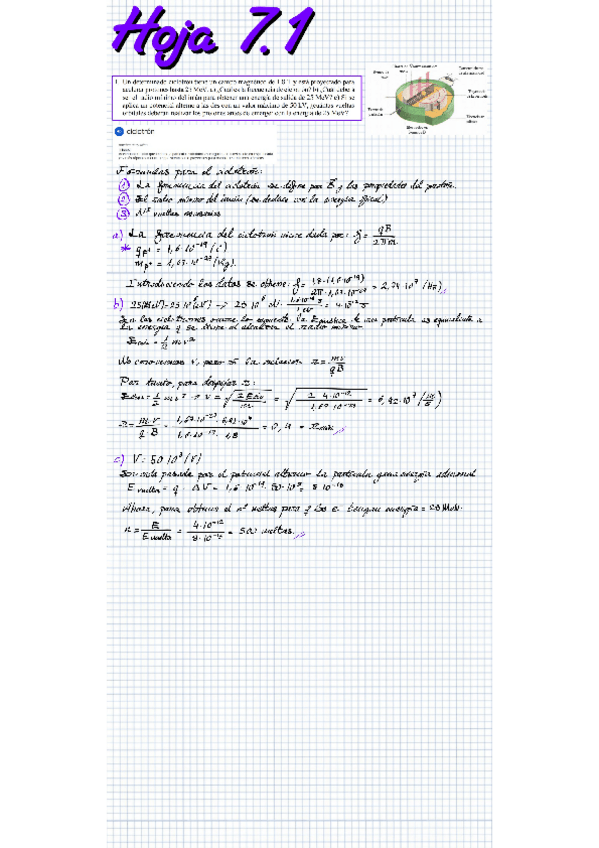 Hoja 7.1
1. Un determinado ciclotrón tiene un campo magnético de 1.8 T y está proyectado para
acelerar protones hasta 25 MeV. a) ¿Cuál es la frecuencia de ciclotrón? b) ¿Cuál debe
ser el radio mínimo del imán para obtener una energía de salida de 25 MeV? c) Si se
aplica un potencial alterno a las des con un valor máximo de 50 kV, ¿cuántas vueltas
deberán realizar los protones antes de emerger con la energía de 25 MeV?
ciclotrón
Formulas para el ciclotrón:
① La frecuencia del ciclotrón se define por B y las propiedades del protón.
② El radio mínimo del imán (se deduce con la energía
③ Nº vueltas necesarias
a) La frecuencia del ciclotrón viene dada por: f = qB / 2πm
* qp+ = 1,6·10⁻¹⁹ (C)
mp+ = 1,67·10⁻²⁷ (Kg).
Introduciendo los datos se obtiene: f = 1,8·(1,6·10⁻¹⁹) / 2π·1,67·10⁻²⁷ = 2,74·10⁷ (Hz)
b) 25(MeV) = 25·10⁶(eV) → 25·10⁶ eV · 1,6·10⁻¹⁹ J / 1 eV = 4·10⁻¹² J
En los ciclotrones ocurre lo siguiente: la Ecinética de una partícula es equivalente a
la energía q se al alcanzar el radio máximo
Ecin = ½ m v²
No conocemos v, pero sí la relación r = mv / qB
Por tanto, para despejar r:
Ecin = ½ m v² → v = √(2 Ecin / m) = √(2·4·10⁻¹² / 1,67·10⁻²⁷) = 6,92·10⁷ (m/s)
r = m·v / q·B = 1,67·10⁻²⁷·6,92·10⁷ / 1,6·10⁻¹⁹·1,8 = 0,4 = rmin
c) V: 50·10³ (V)
En cada pasada por el potencial alterno la partícula gana energía adicional
E vuelta = q · ΔV = 1,6·10⁻¹⁹·50·10³ = 8·10⁻¹⁵
Ahora, para obtener el nº vueltas para q los e⁻ tengan energía = 25 MeV:
n = E / E vuelta = 4·10⁻¹² / 8·10⁻¹⁵ = 500 vueltas.